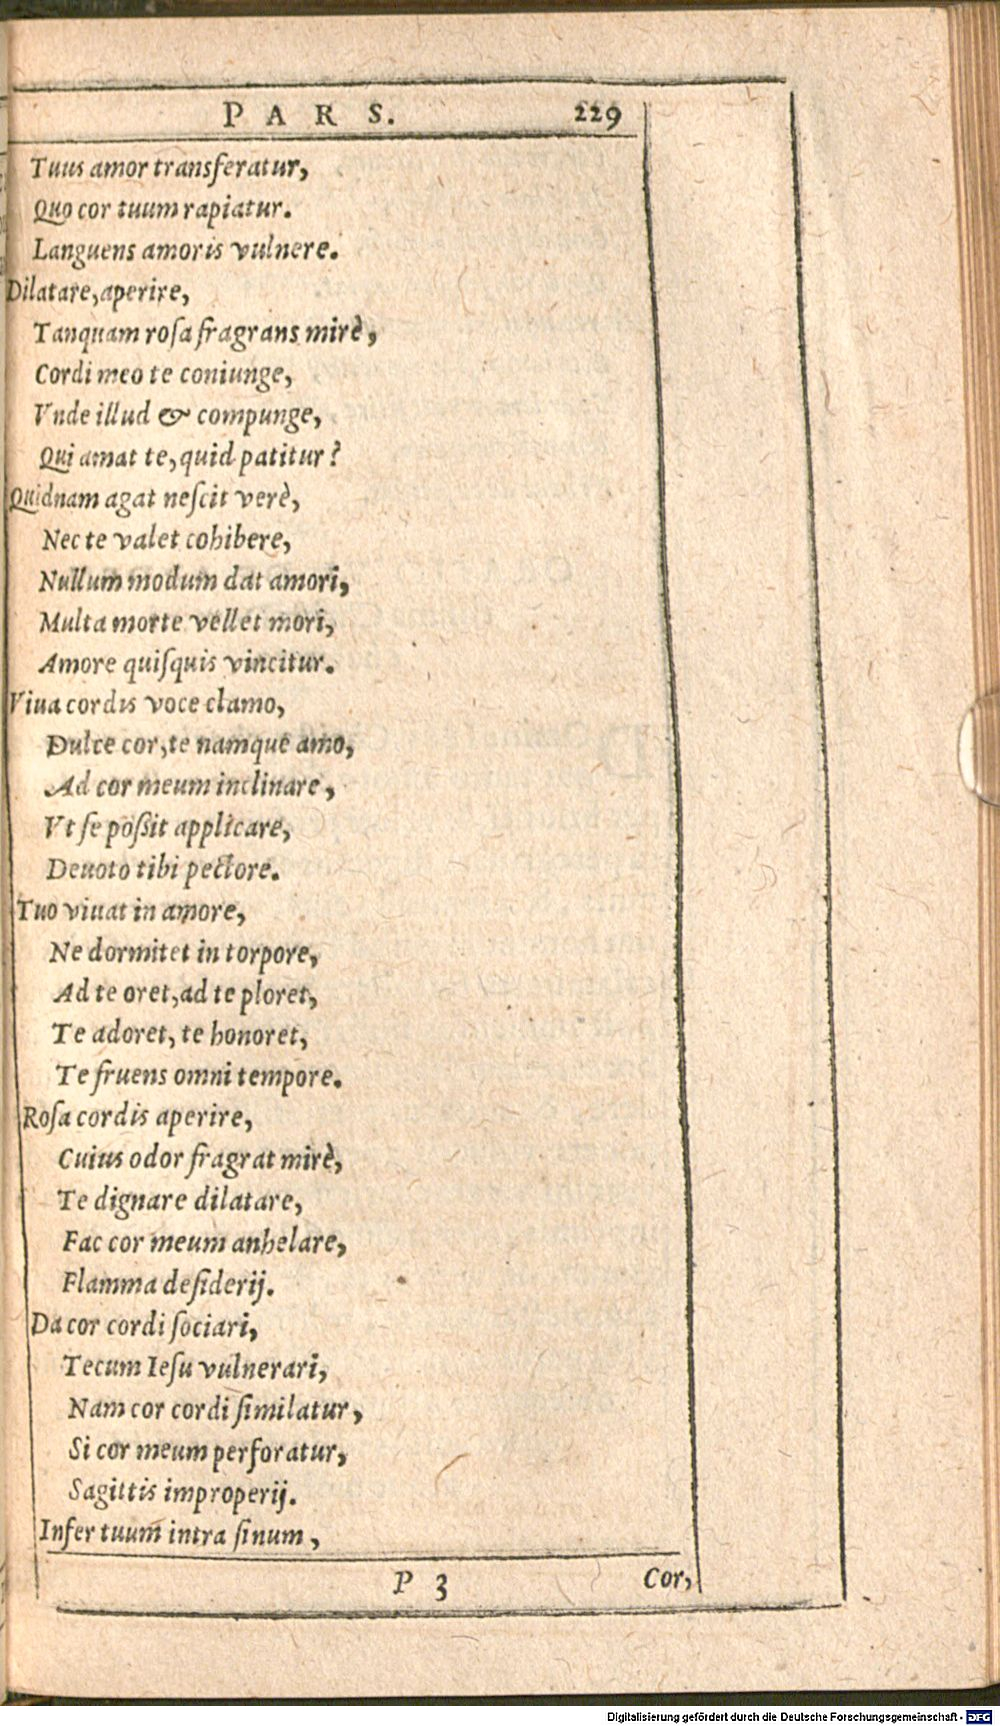 PARS. 229
Tuus amor transferatur,
Quo cor tuum rapiatur.
Languens amoris vulnere.
Dilatare, aperire,
Tanquam roſa fragrans mirè,
Cordi meo te coniunge,
Vnde illud & compunge,
Qui amat te, quid patitur?
Quidnam agat neſcit verè,
Nec te valet cohibere,
Nullum modum dat amori,
Multa morte vellet mori,
Amore quiſquis vincitur.
Viua cordis voce clamo,
Dulce cor, te namque amo,
Ad cor meum inclinare,
Vt ſe poßit applicare,
Deuoto tibi pectore.
Tuo viuat in amore,
Ne dormitet in torpore,
Ad te oret, ad te ploret,
Te adoret, te honoret,
Te fruens omni tempore.
Roſa cordis aperire,
Cuius odor fragrat mirè,
Te dignare dilatare,
Fac cor meum anhelare,
Flamma deſiderij.
Da cor cordi ſociari,
Tecum Ieſu vulnerari,
Nam cor cordi ſimilatur,
Si cor meum perforatur,
Sagittis improperij.
Infer tuum intra ſinum,
P 3 Cor,
Digitalisierung gefördert durch die Deutsche Forschungsgemeinschaft - DFG